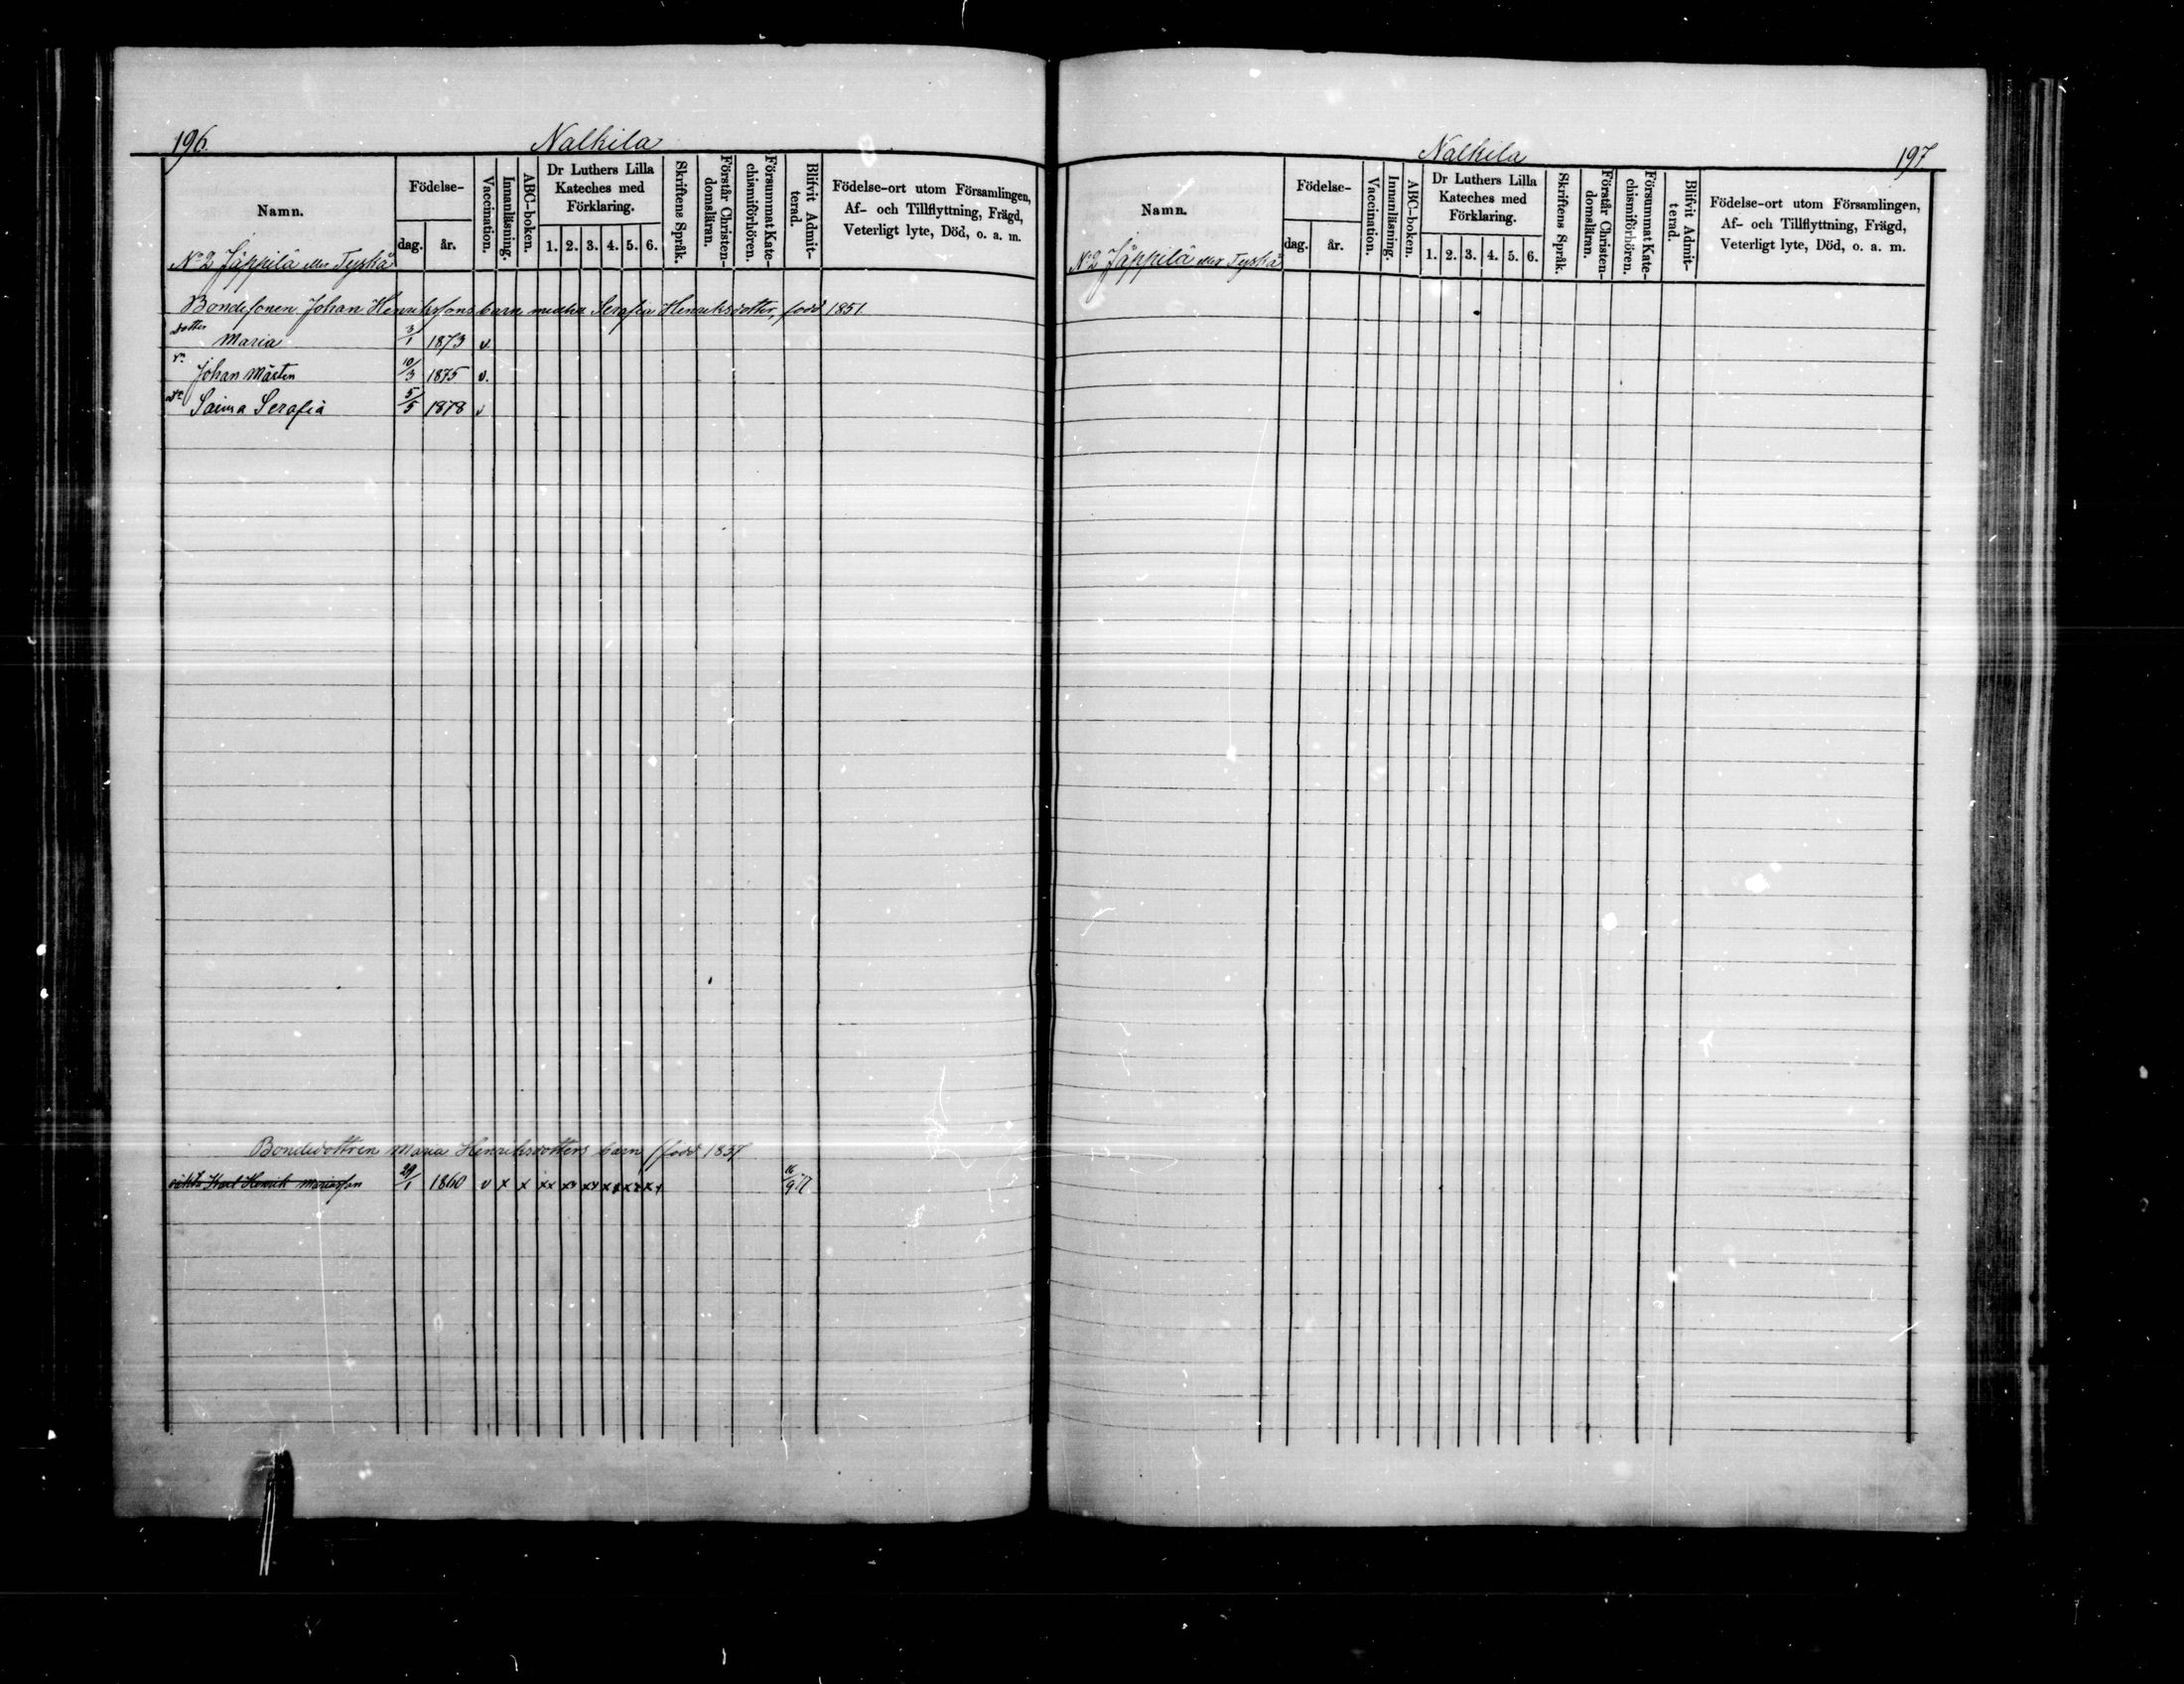 196.
Nalkila
Namn.
Födelse-
dag.
år.
Vaccination.
Innanläsning.
ABC-boken.
Dr Luthers Lilla
Kateches med
Förklaring.
1. 2. 3. 4. 5. 6.
Skriftens Språk.
Förstår Christen-
domsläran.
Försummat Kate-
chismiförhören.
Blifvit Admit-
terad.
Födelse-ort utom Församlingen,
Af- och Tillflyttning, Frägd,
Veterligt lyte, Död, o. a. m.
No 2 Jäppilä eller Tyskä
Bondesonen Johan Henrikssons barn med Serafia Henriksdotter, född 1851
dotter Maria 3/1 1873 v.
Johan Mårten 10/3 1875 v.
Saima Serafia 5/5 1878 v
Bondedottren Maria Henriksdotters barn (född 1837
oäkta Karl Henrik Mariasson 29/1 1860 v x x xx xx xx xx xx xx 16/9 77
Nalkila
197
Namn.
Födelse-
dag.
år.
Vaccination.
Innanläsning.
ABC-boken.
Dr Luthers Lilla
Kateches med
Förklaring.
1. 2. 3. 4. 5. 6.
Skriftens Språk.
Förstår Christen-
domsläran.
Försummat Kate-
chismiförhören.
Blifvit Admit-
terad.
Födelse-ort utom Församlingen,
Af- och Tillflyttning, Frägd,
Veterligt lyte, Död, o. a. m.
No 2 Jäppilä eller Tyskä